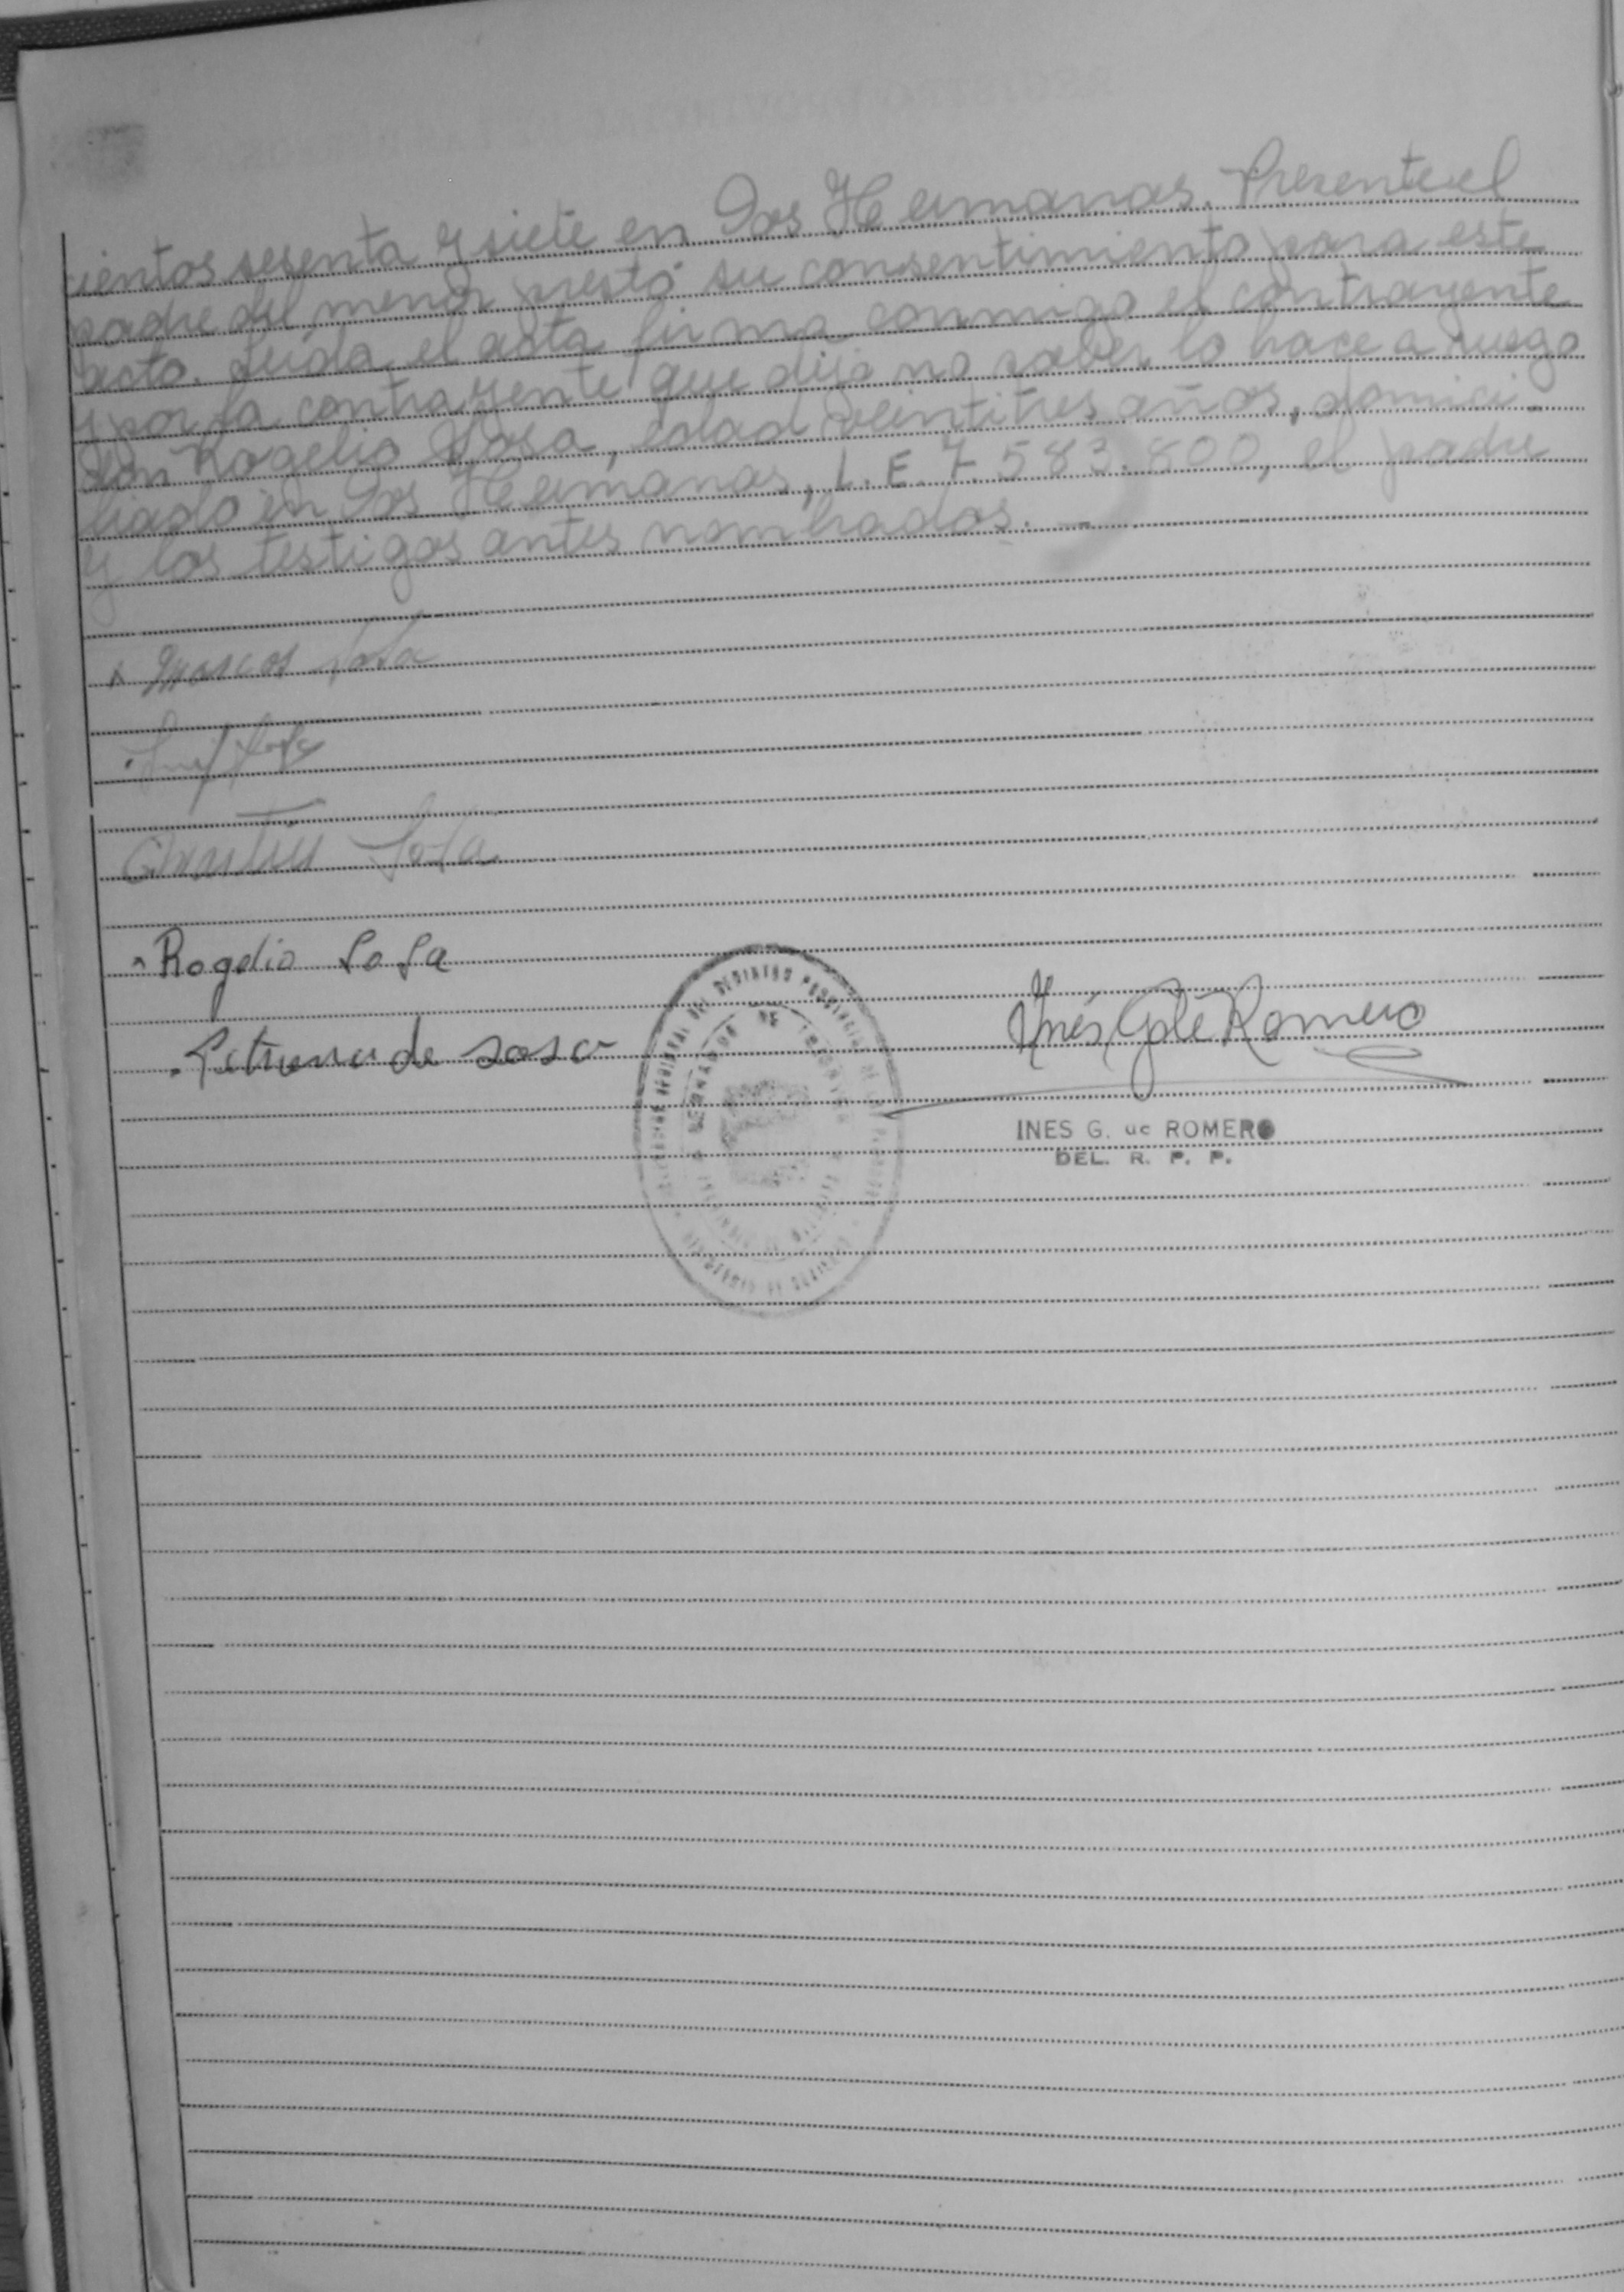 cientos sesenta y siete en Dos Hermanas. Presente el
padre del menor prestó su consentimiento para este
acto. Leída el acta firma conmigo el contrayente
y por la contrayente que dijo no saber lo hace a ruego
don Rogelio Sosa, edad veintitres años, domici-
liado en Dos Hermanas, L.E. 7.583.800, el padre
y los testigos antes nombrados. -
Marcos Sosa
Sosa
Rogelio Sosa
de sosa
Inés G. de Romero
INES G. de ROMERO
DEL. R. P. P.